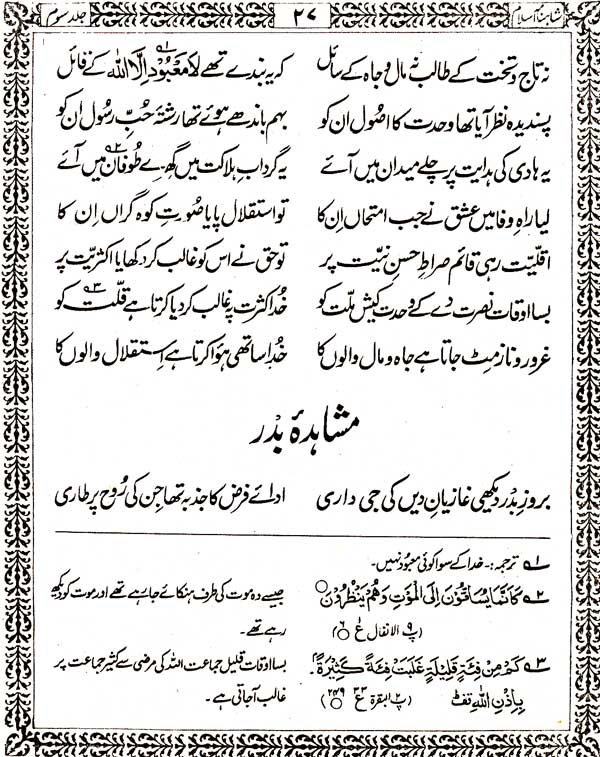 شاہنامۂ اسلام ۲۷ جلد سوم
نہ تاج و تخت کے طالب نہ مال و جاہ کے سائل کہ یہ بندے تھے لَا مَعْبُوْدَ اِلَّا اللّٰہ کے قائل ؎۱
پسندیدہ نظر آیا تھا وحدت کا اصُول ان کو بہم باندھے ہوئے تھا رشتۂ حُبِّ رسُول ان کو
یہ ہادی کی ہدایت پر چلے میدان میں آئے یہ گردابِ ہلاکت میں گھرے طُوفان میں آئے ؎۲
لیا راہِ وفا میں عشق نے جب امتحاں اِن کا تو استقلال پایا صُورتِ کوہِ گراں اِن کا
اقلیّت رہی قائم صراطِ حسنِ نیّت پر تو حق نے اس کو غالب کر دکھایا اکثریّت پر
بسا اوقات نصرت دے کے وحدت کیش ملّت کو خُدا کثرت پہ غالب کر دیا کرتا ہے قلّت کو ؎۳
غرور و ناز مِٹ جاتا ہے جاہ و مال والوں کا خُدا ساتھی ہؤا کرتا ہے اِستقلال والوں کا
مشاہدۂ بدْر
بروزِ بدْر دیکھی غازیانِ دیں کی جی داری ادائے فرض کا جذبہ تھا جن کی رُوح پر طاری
؎۱ ترجمہ:۔ خدا کے سوا کوئی معبود نہیں۔
؎۲ کَاَنَّمَا یُسَاقُوْنَ اِلَی الْمَوْتِ وَھُمْ یَنْظُرُوْنَ جیسے وہ موت کی طرف ہنکائے جا رہے تھے اور موت کو دیکھ
(پ ۹ الانفال ع ۶) رہے تھے۔
؎۳ کَمْ مِنْ فِئَۃٍ قَلِیْلَۃٍ غَلَبَتْ فِئَۃً کَثِیْرَۃً بسا اوقات قلیل جماعت اللہ کی مرضی سے کثیر جماعت پر
بِاِذْنِ اللّٰہِ تف (پ ۲ البقرۃ ع ۳۳ ۲۴۹) غالب آ جاتی ہے۔